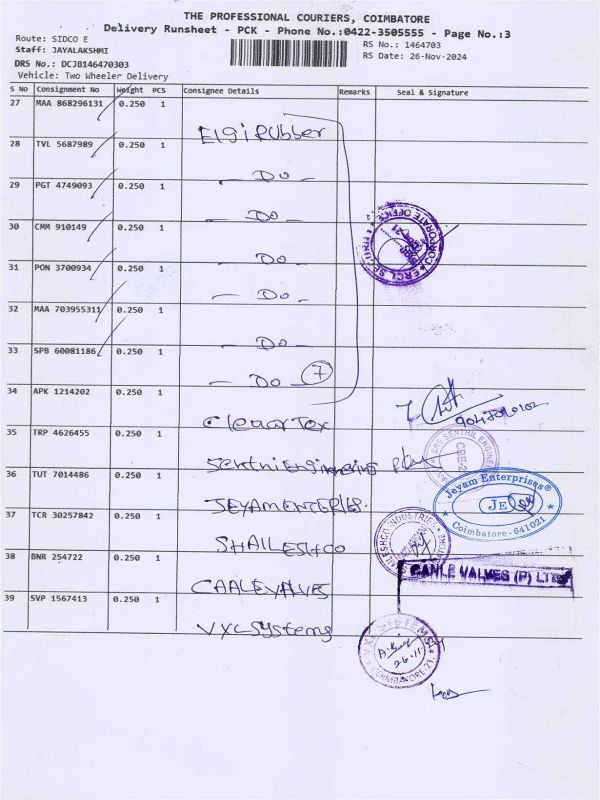 THE PROFESSIONAL COURIERS, COIMBATORE
Delivery Runsheet - PCK - Phone No.:0422-3505555 - Page No.:3
Route: SIDCO E
RS No.: 1464703
Staff: JAYALAKSHMI
RS Date: 26-Nov-2024
DRS No.: DCJB146470303
Vehicle: Two Wheeler Delivery
S No Consignment No Weight PCS Consignee Details Remarks Seal & Signature
27 MAA 868296131 0.250 1
Elgi Rubber
28 TVL 5687989 0.250 1
- Do -
29 PGT 4749093 0.250 1
- Do -
30 CMM 910149 0.250 1
- Do -
31 PON 3700934 0.250 1
- Do -
32 MAA 703955311 0.250 1
- Do -
33 SPB 60081186 0.250 1
- Do - 7
34 APK 1214202 0.250 1
Clear Tex
35 TRP 4626455 0.250 1
Senthil Engineering
36 TUT 7014486 0.250 1
JEYAM ENTERPRISES.
37 TCR 30257842 0.250 1
SHAILESHCO
38 BNR 254722 0.250 1
CAALE VALVES
39 SVP 1567413 0.250 1
VXL Systems
CORPORATE OFFICE
SRI SENTHIL ENGINEE
Jeyam Enterprises®
JE
Coimbatore - 641021
SHAILESHCO INDUSTRIES
CANLE VALVES (P) LTD
VXL SYSTEMS
26.11
COIMBATORE-21